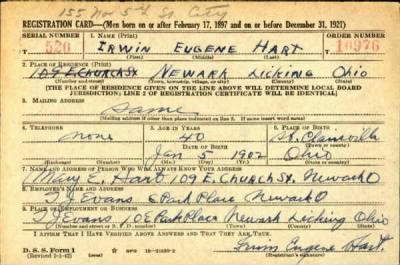 155 No 5th St City
REGISTRATION CARD—(Men born on or after February 17, 1897 and on or before December 31, 1921)
SERIAL NUMBER 1. NAME (Print) ORDER NUMBER
T 520 IRWIN EUGENE HART T 10976
(First) (Middle) (Last)
2. PLACE OF RESIDENCE (Print)
109 E. CHURCH ST. NEWARK LICKING OHIO
(Number and street) (Town, township, village, or city) (County) (State)
[THE PLACE OF RESIDENCE GIVEN ON THE LINE ABOVE WILL DETERMINE LOCAL BOARD
JURISDICTION; LINE 2 OF REGISTRATION CERTIFICATE WILL BE IDENTICAL]
3. MAILING ADDRESS
Same
[Mailing address if other than place indicated on line 2. If same insert word same]
4. TELEPHONE 5. AGE IN YEARS 6. PLACE OF BIRTH
none 40 St. Clairsville
DATE OF BIRTH (Town or county)
Jan 5 1902 Ohio
(Exchange) (Number) (Mo.) (Day) (Yr.) (State or country)
7. NAME AND ADDRESS OF PERSON WHO WILL ALWAYS KNOW YOUR ADDRESS
Mary E. Hart 109 E. CHURCH ST. NEWARK O
8. EMPLOYER'S NAME AND ADDRESS
T.J. Evans E Park Place Newark O
9. PLACE OF EMPLOYMENT OR BUSINESS
T.J. Evans 10 E Park Place Newark Licking Ohio
(Number and street or R. F. D. number) (Town) (County) (State)
I AFFIRM THAT I HAVE VERIFIED ABOVE ANSWERS AND THAT THEY ARE TRUE.
D. S. S. Form 1 Irwin Eugene Hart
(Revised 1-1-42) (over) GPO 16-21630-2 (Registrant's signature)